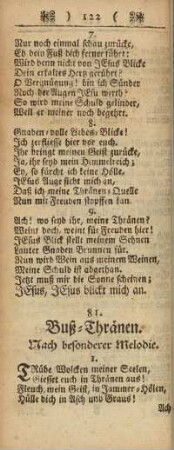 122
7.
Nur noch einmal schau zurücke,
Eh dein Fuß dich ferner führet:
Wird denn nicht von JEsus Blicke
Dein erkaltes Herz gerühret?
O Vergnügung! bin ich Sünder
Noch der Augen JEsu werth?
So wird meine Schuld gelinder,
Weil er meiner noch begehrt.
8.
Gnaden-volle Liebes-Blicke!
Ich zerfliesse hier vor euch.
Ihr bringt meinen Geist zurücke,
Ja, ihr seyd mein Himmelreich;
Ey, so fürcht ich keine Hölle.
JEsus Auge sieht mich an,
Daß ich meine Thränen-Quelle
Nun mit Freuden stopffen kan.
9.
Ach! wo seyd ihr, meine Thränen?
Weint doch, weint für Freuden hier!
JEsus Blick stellt meinem Sehnen
Lauter Gnaden Brunnen für.
Nun wird Wein aus meinem Weinen,
Meine Schuld ist abgethan.
Jetzt muß mir die Sonne scheinen;
JEsus, JEsus blickt mich an.
81.
Buß-Thränen.
Nach besonderer Melodie.
1.
TRübe Wolcken meiner Seelen,
Giesset euch in Thränen aus!
Fleuch mein Geist, in Jammer-Hölen,
Hülle dich in Asch und Graus!
Ach